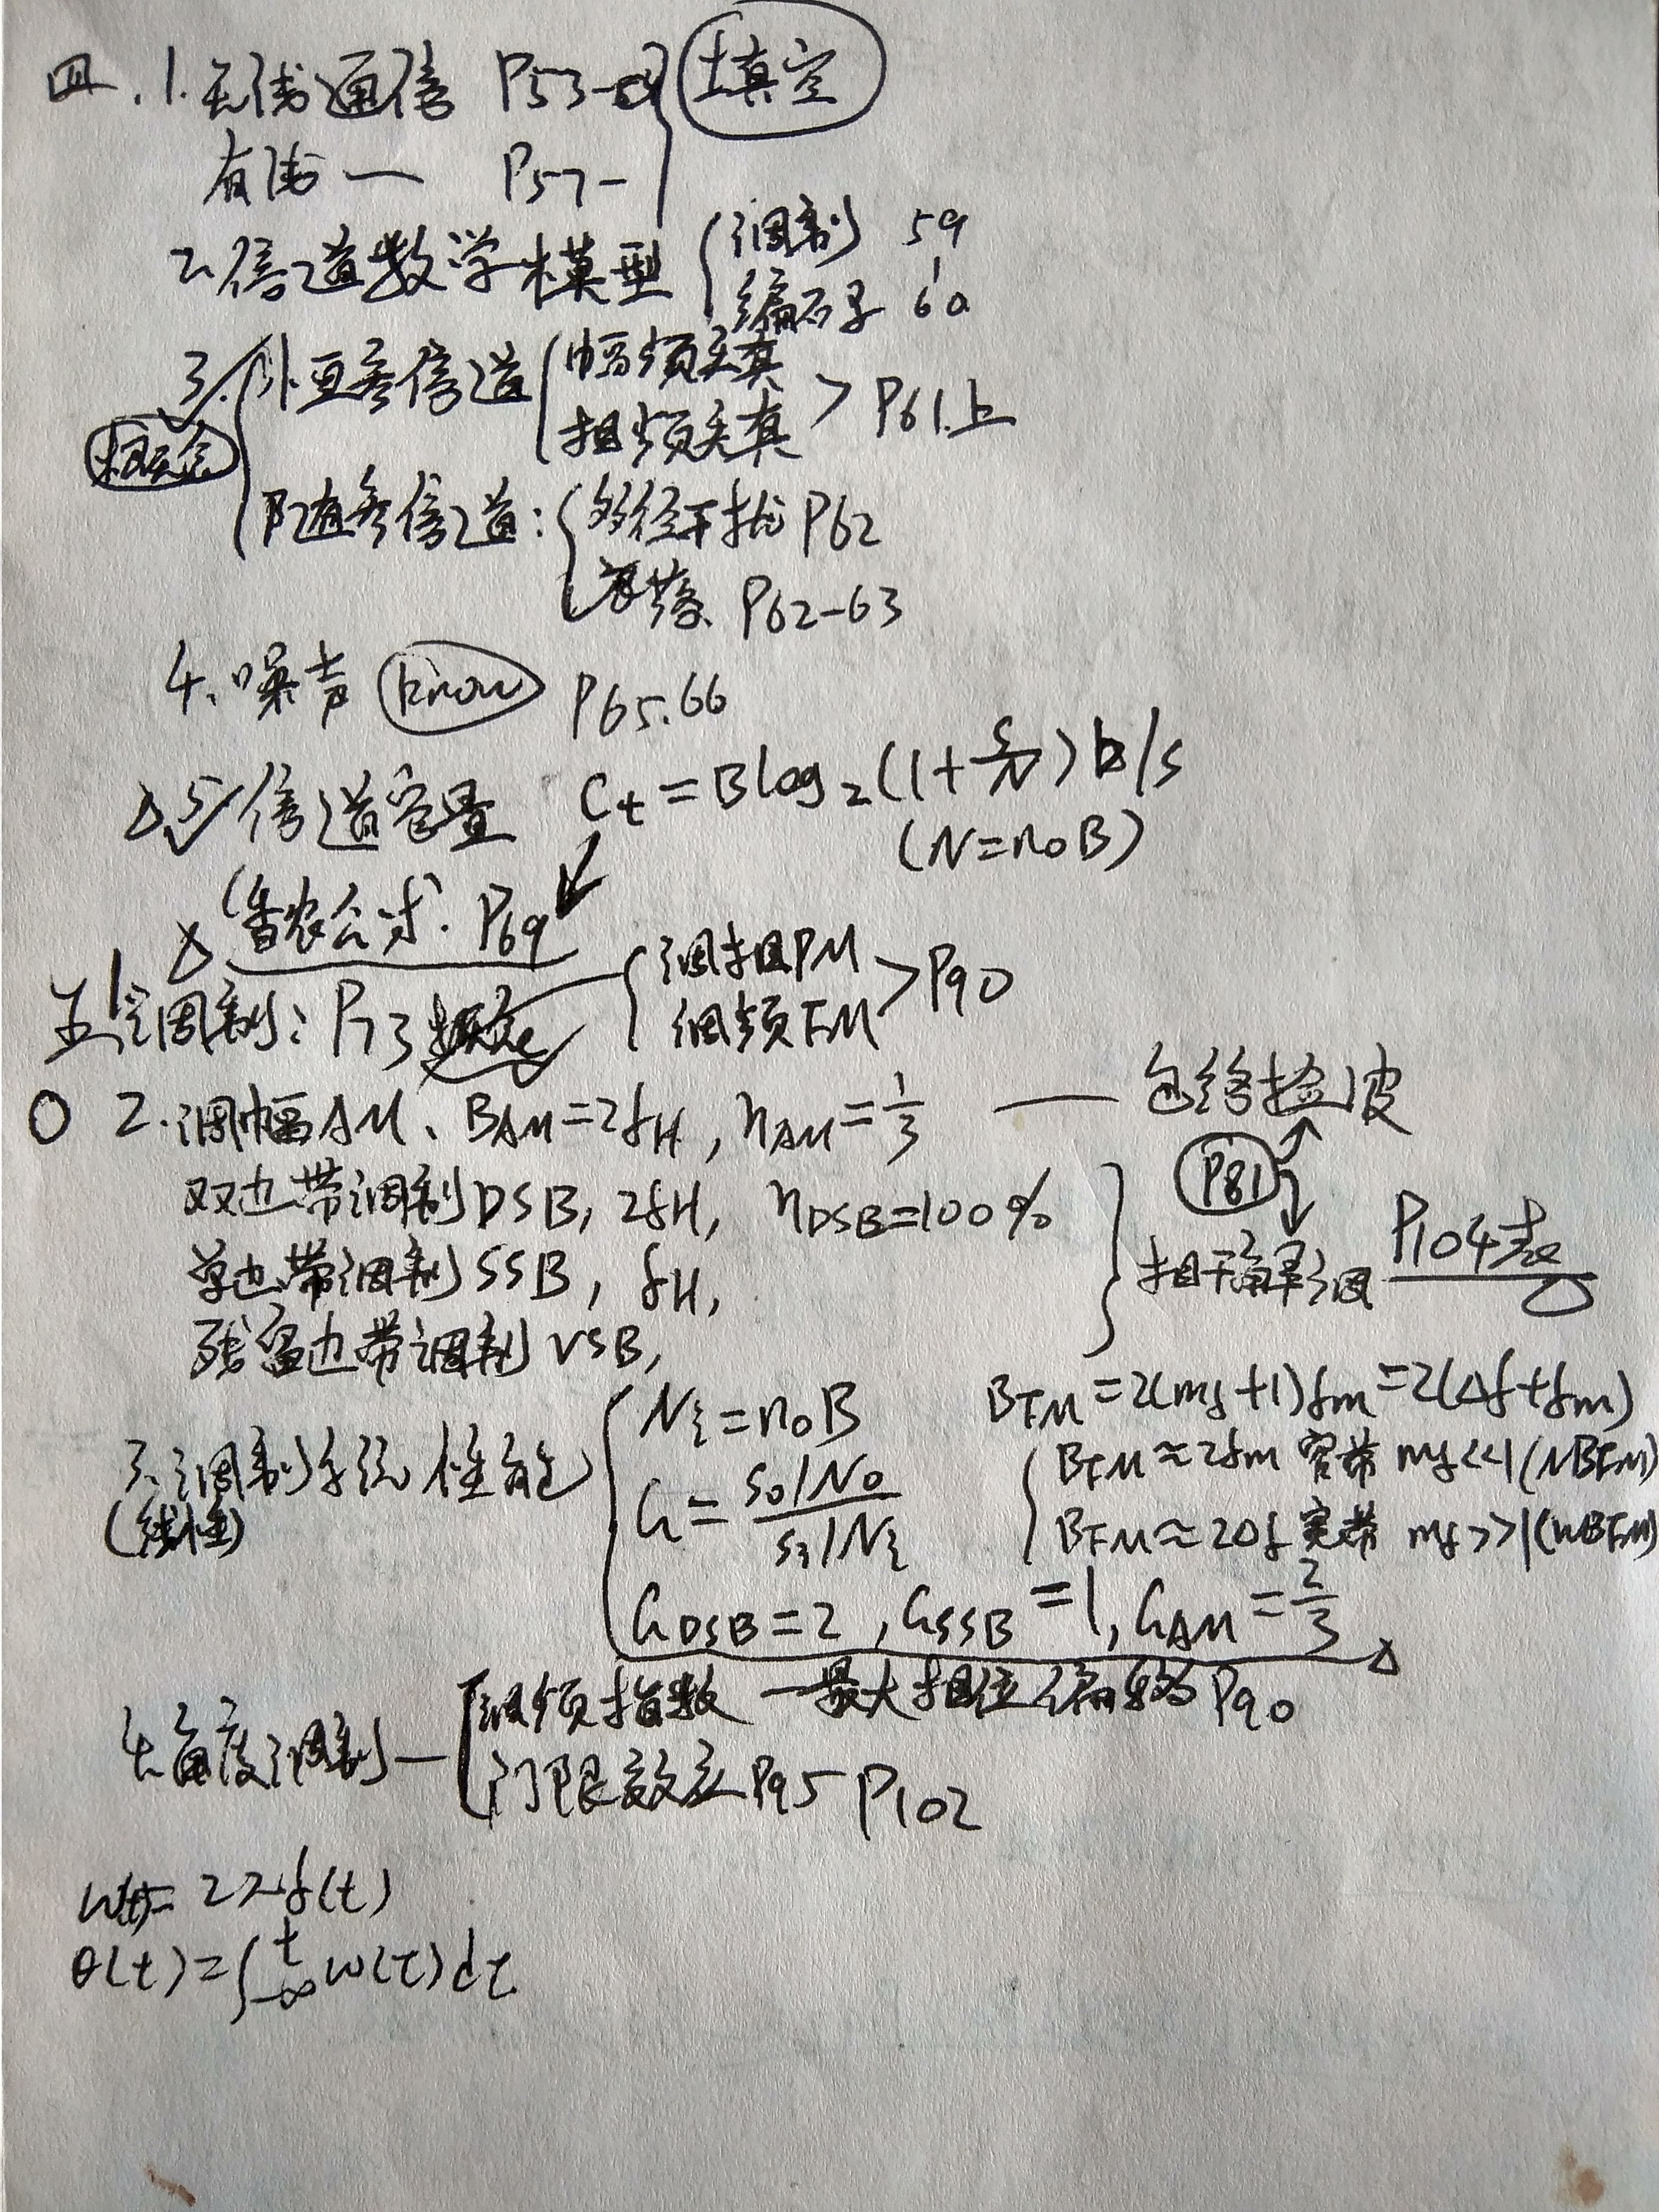 四.1.无线通信 P53- 填空
有线一 P57-
2.信道数学模型 调制 59
编码 60
3.恒参信道 幅频失真
相频失真 > P61.上
概念
随参信道: 多径干扰 P62
衰落 P62-63
4.噪声 know P65.66
△5.信道容量 Ct=Blog₂(1+S/N) b/s
(N=n₀B)
(香农公式. P69
五.1.调制: P73 概念 调相PM
调频FM > P90
2.调幅AM、BAM=2fH, ηAM=1/3 — 包络检波
P81
双边带调制DSB, 2fH, ηDSB=100%
单边带调制SSB, fH, 相干解调 P104表
残留边带调制VSB,
3.调制系统性能 Ni=n₀B
(线性)
G=So/No / Si/Ni
GDSB=2, GSSB=1, GAM=2/3
BFM=2(mf+1)fm=2(Δf+fm)
BFM≈2fm 窄带 mf<<1(NBFM)
BFM≈2Δf 宽带 mf>>1(WBFM)
4.角度调制— 调频指数 —最大相位偏移 P90
门限效应 P95 P102
w(t)=2πf(t)
θ(t)=∫_{-∞}^{t} w(τ)dτ